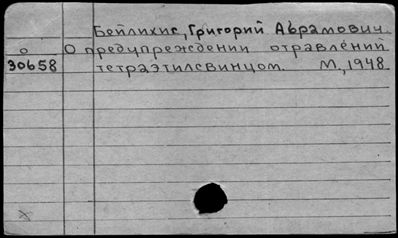 Бейлихис, Григорий Абрамович.
О О предупреждении отравлений
30658 тетраэтилсвинцом. М., 1948